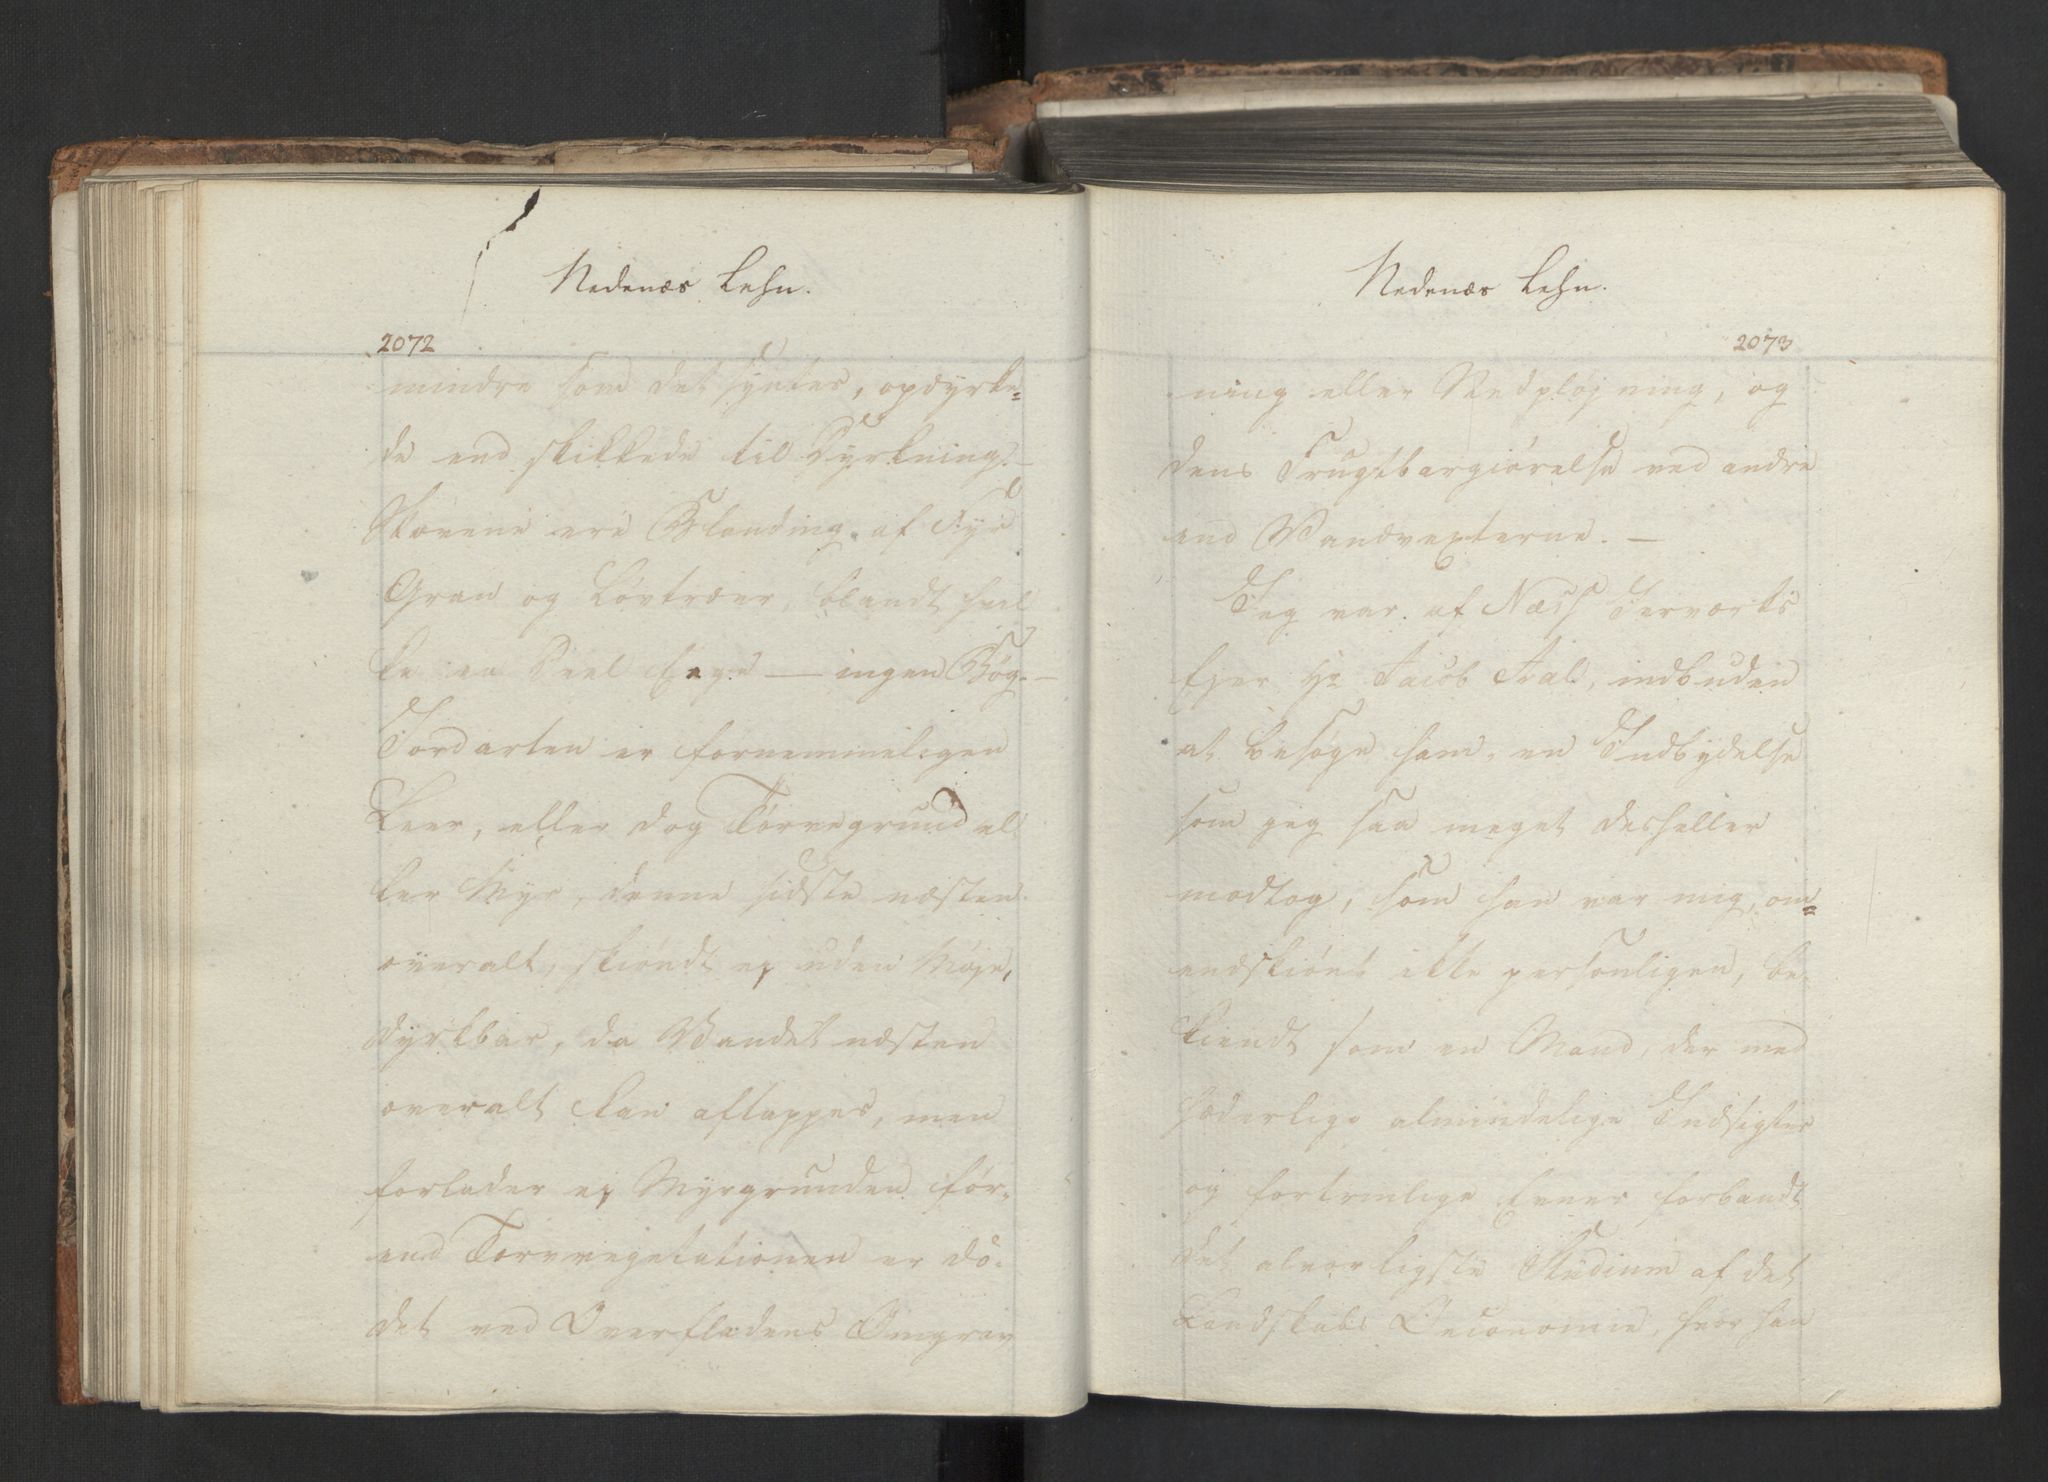 Nedenæs Lehn.
2072
mindre som det syntes, opdyrke=
de end skikkede til Dyrkning. —
Skovene ere Blanding af Fyr
Gran og Løvtræer, blandt hvil
ke en Deel Eege — ingen Bøg. —
Jordarten er fornemmeligen
Leer, eller dog Tørvegrund el
ler Myr, denne sidste næsten
overalt, skiøndt ej uden Møje,
dyrkbar, da Vandet næsten
overalt kan aftappes, men
forlader ej Myrgrunden før-
end Tørvvegetationen er dö-
det ved Overfladens Omgrav
Nedenæs Lehn.
2073
ning eller Nedpløjning, og
dens Frugtbargiörelse ved andre
end Vandvexterne. —
Jeg var af Næss Jernværks
Ejer Hr Jacob Aal, indbuden
at besøge ham, en Indbydelse
som jeg saa meget desheller
modtog, som han var mig, om=
endskiönt ikke personligen, be-
kiendt som en Mand, der med
hæderlige almindelige Indsigter
og fortrinlige Evner forbandt
det alvorligste Studium af det
Landskabs Oeconomie, hvor han